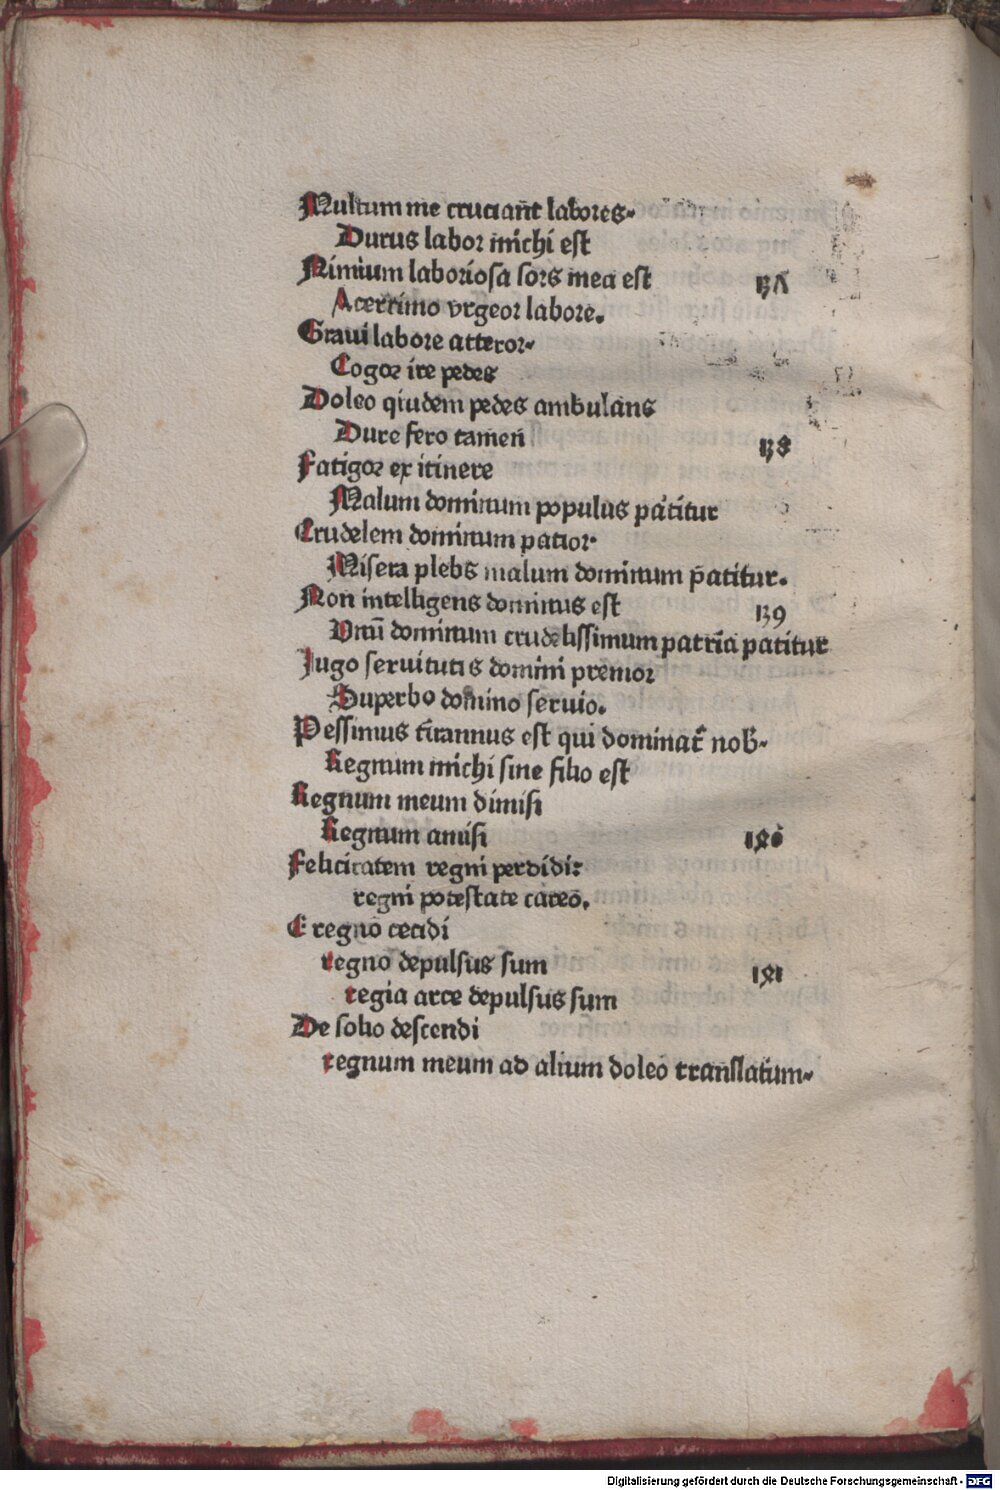 Multum me cruciant̄ labores.
Durus labor michi est
Nimium laboriosa sors mea est 137
Acerrimo vrgeor labore.
Graui labore atteror.
Cogor ire pedes
Doleo qiudem pedes ambulans
Dure fero tamen 138
Fatigor ex itinere
Malum dominum populus patitur
Crudelem dominum patior.
Misera plebs malum dominum patitur.
Non intelligens dominus est 139
Vnū dominum crudelissimum patria patitur
Jugo seruitutis domini premor
Superbo domino seruio.
Pessimus tirannus est qui dominat̄ nob.
Regnum michi sine filio est
Regnum meum dimisi
Regnum amisi 140
Felicitatem regni perdidi:
regni potestate careo.
E regno cecidi
regno depulsus sum 141
regia arce depulsus sum
De solio descendi
regnum meum ad alium doleo translatum.
Digitalisierung gefördert durch die Deutsche Forschungsgemeinschaft - DFG